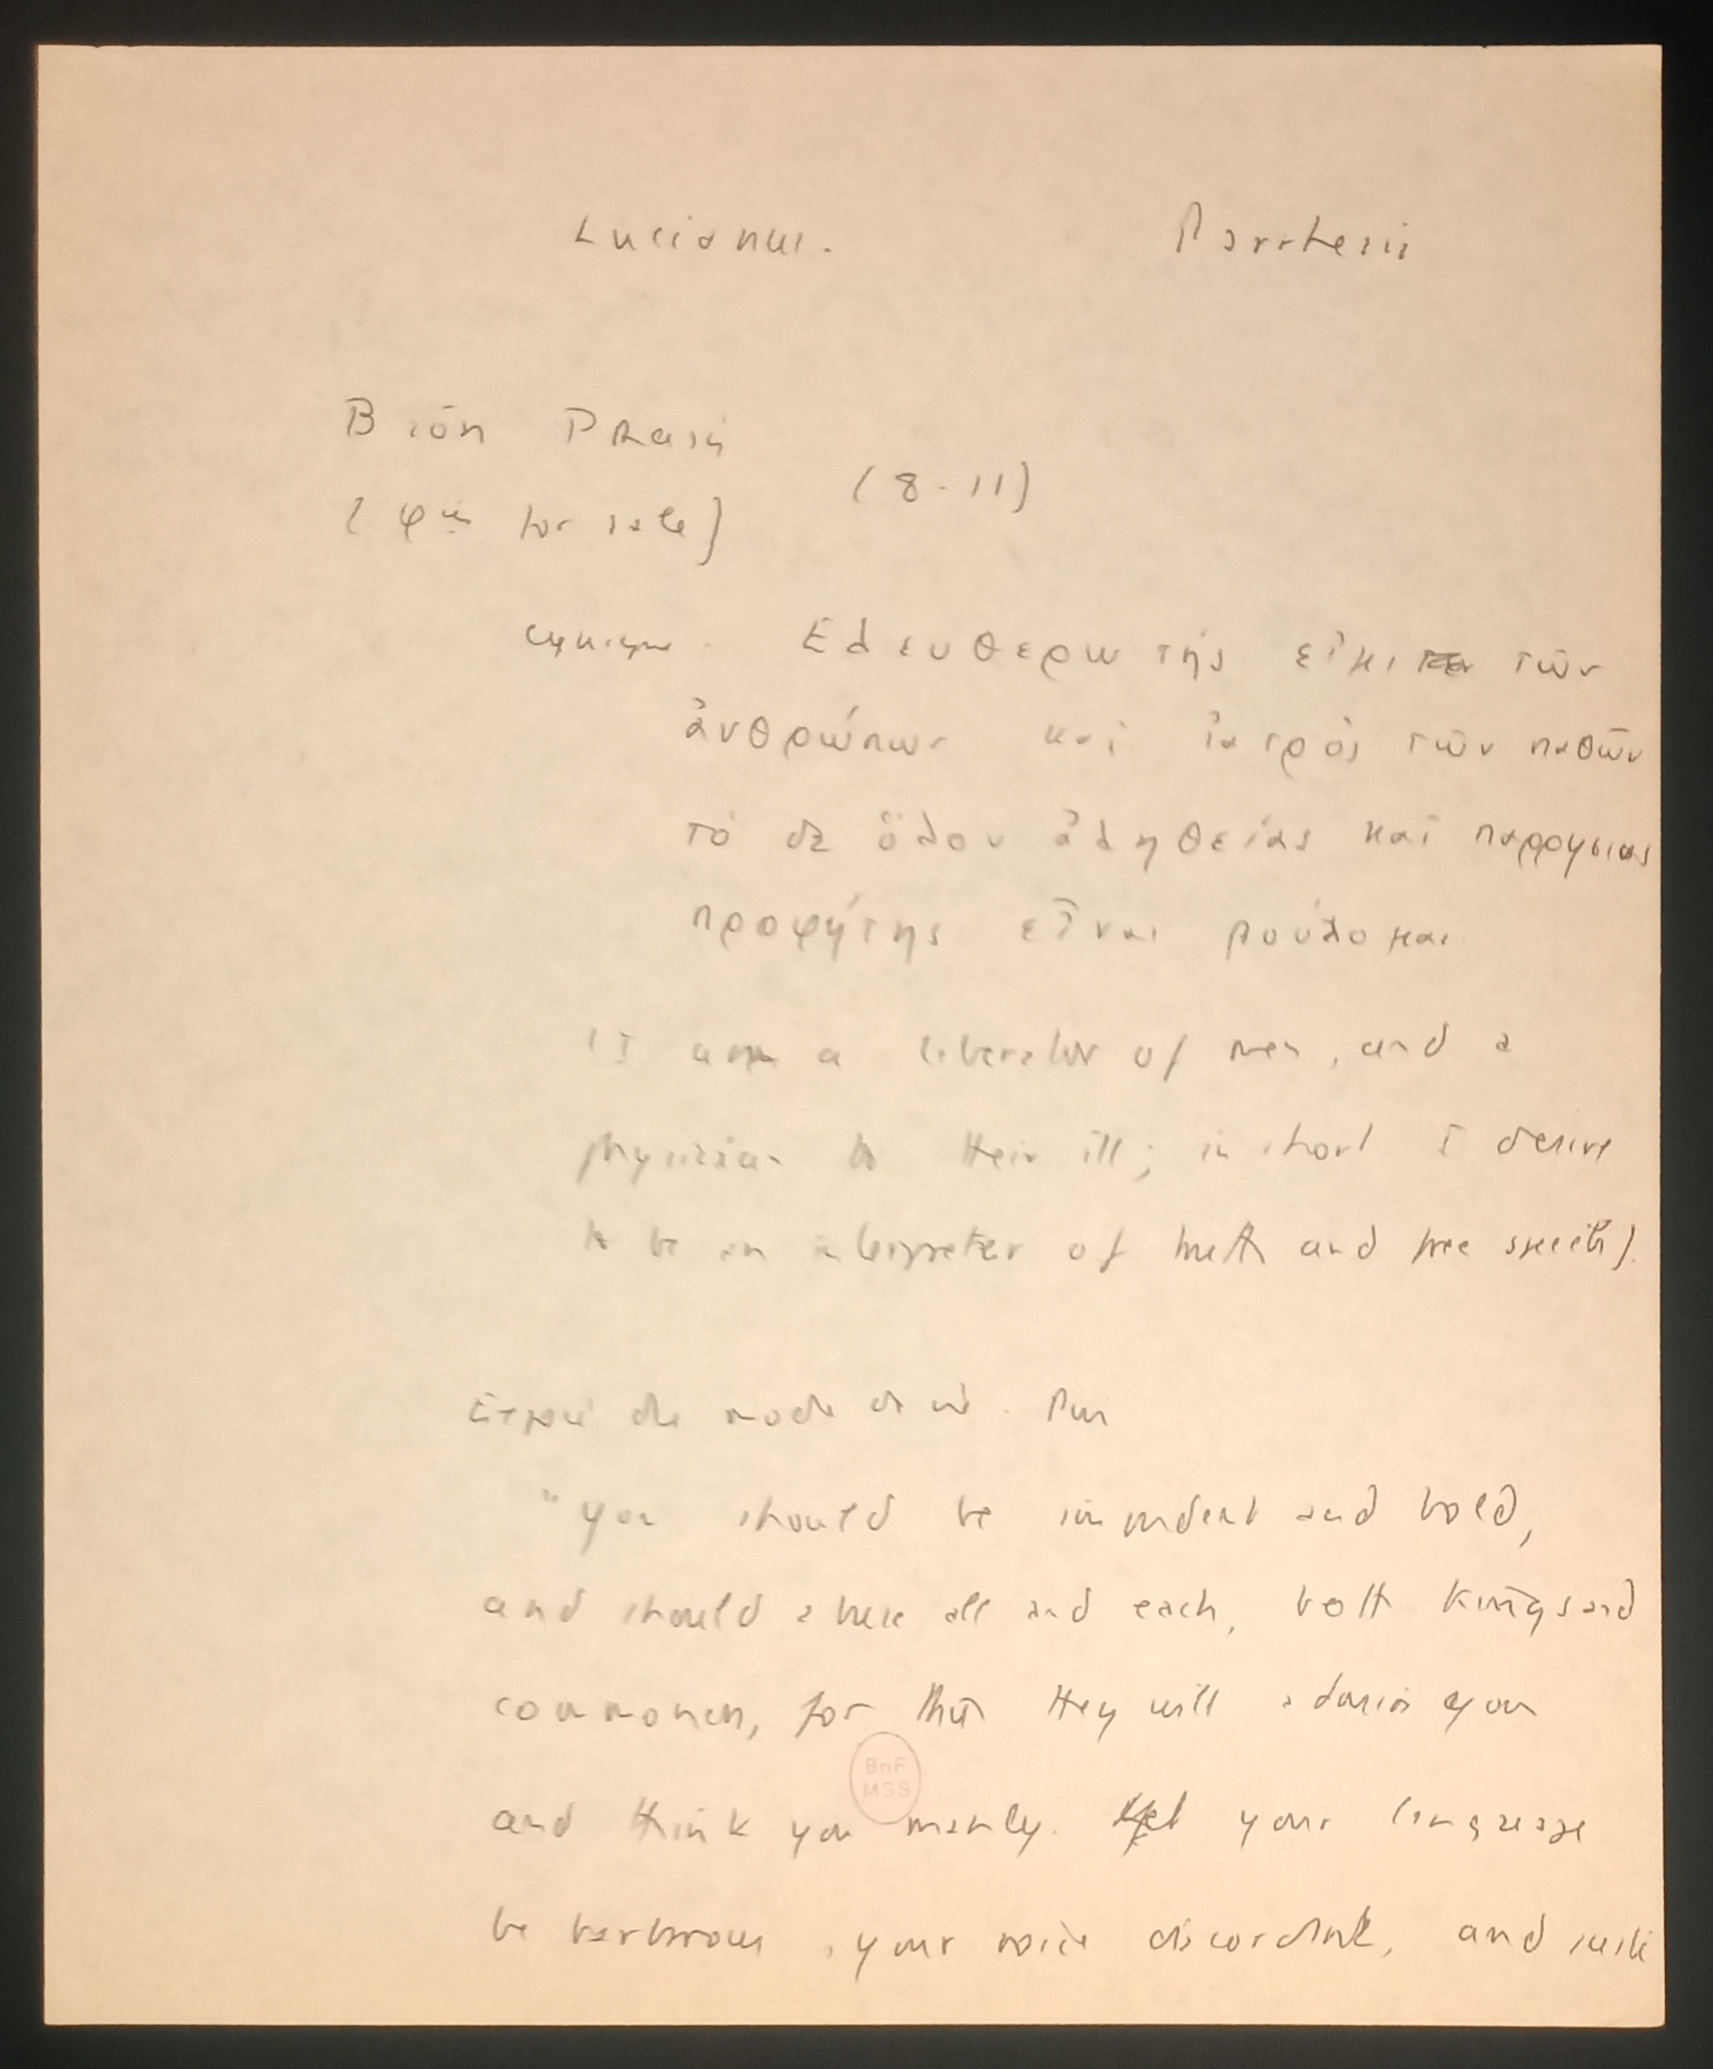 Lucianus. Parrhesia
Biôn Prasis
(φies for sale) (8-11)
cynique. Ελευθερωτής εἰμι τῶν
ἀνθρώπων καὶ ἰατρὸς τῶν παθῶν
τὸ δὲ ὅλον ἀληθείας καὶ παρρησιας
προφήτης εἶναι βούλομαι
(I am a liberator of men, and a
physician to their ill; in short I desire
to be an interpreter of truth and free speech).
de mode de vie.
"you should be impudent and bold,
and should abuse all and each, both Kings and
commonen, for thus they will admire you
and think you manly. Let your language
be barbarous, your voice discordant, and
BnF
MSS